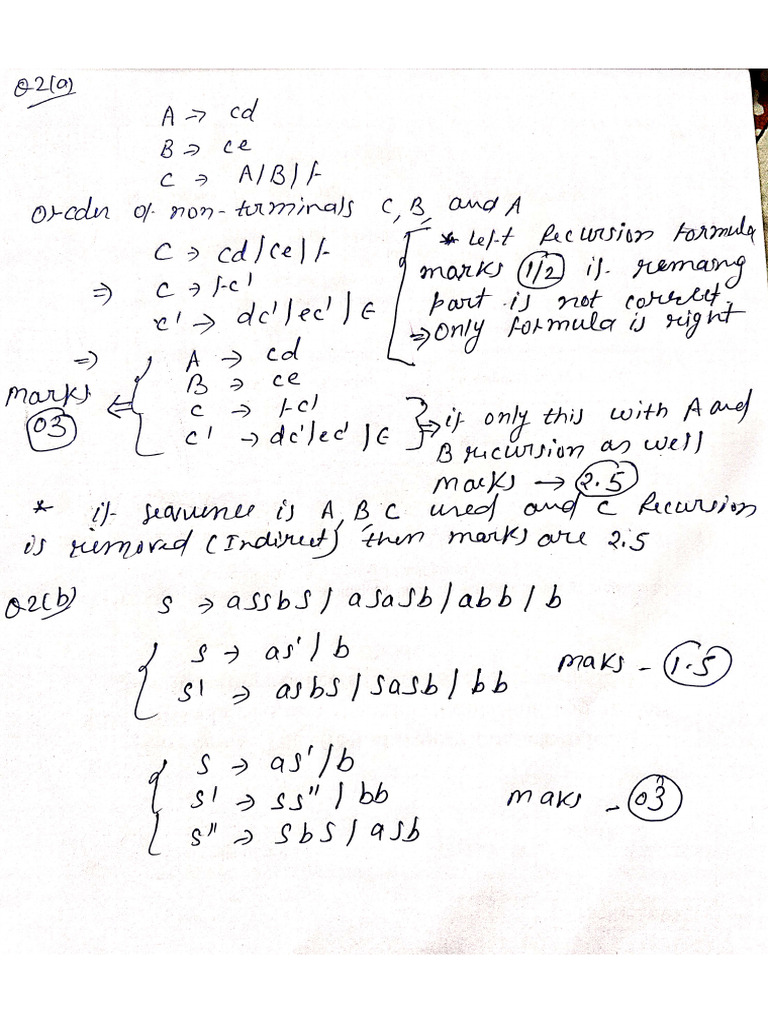 Q2(a)
A → cd
B → ce
C → A/B/f
Order of non-terminals C, B, and A
C → cd/ce/f
⇒ C → fc'
c' → dc'/ec'/ε
* Left Recursion formula
marks (1/2) if remaing
part is not correct.
⇒ Only formula is right
⇒ A → cd
B → ce
C → fc'
c' → dc'/ec'/ε
marks 03
⇒ if only this with A and
B recursion as well
marks → 2.5
* if sequence is A, B, C used and C Recursion
is removed (Indirect) then marks are 2.5
Q2(b) S → assbs / asasb / abb / b
S → as' / b
S' → asbs / sasb / bb
maks - 1.5
S → as' / b
S' → ss'' / bb
S'' → sbs / asb
maks - 03